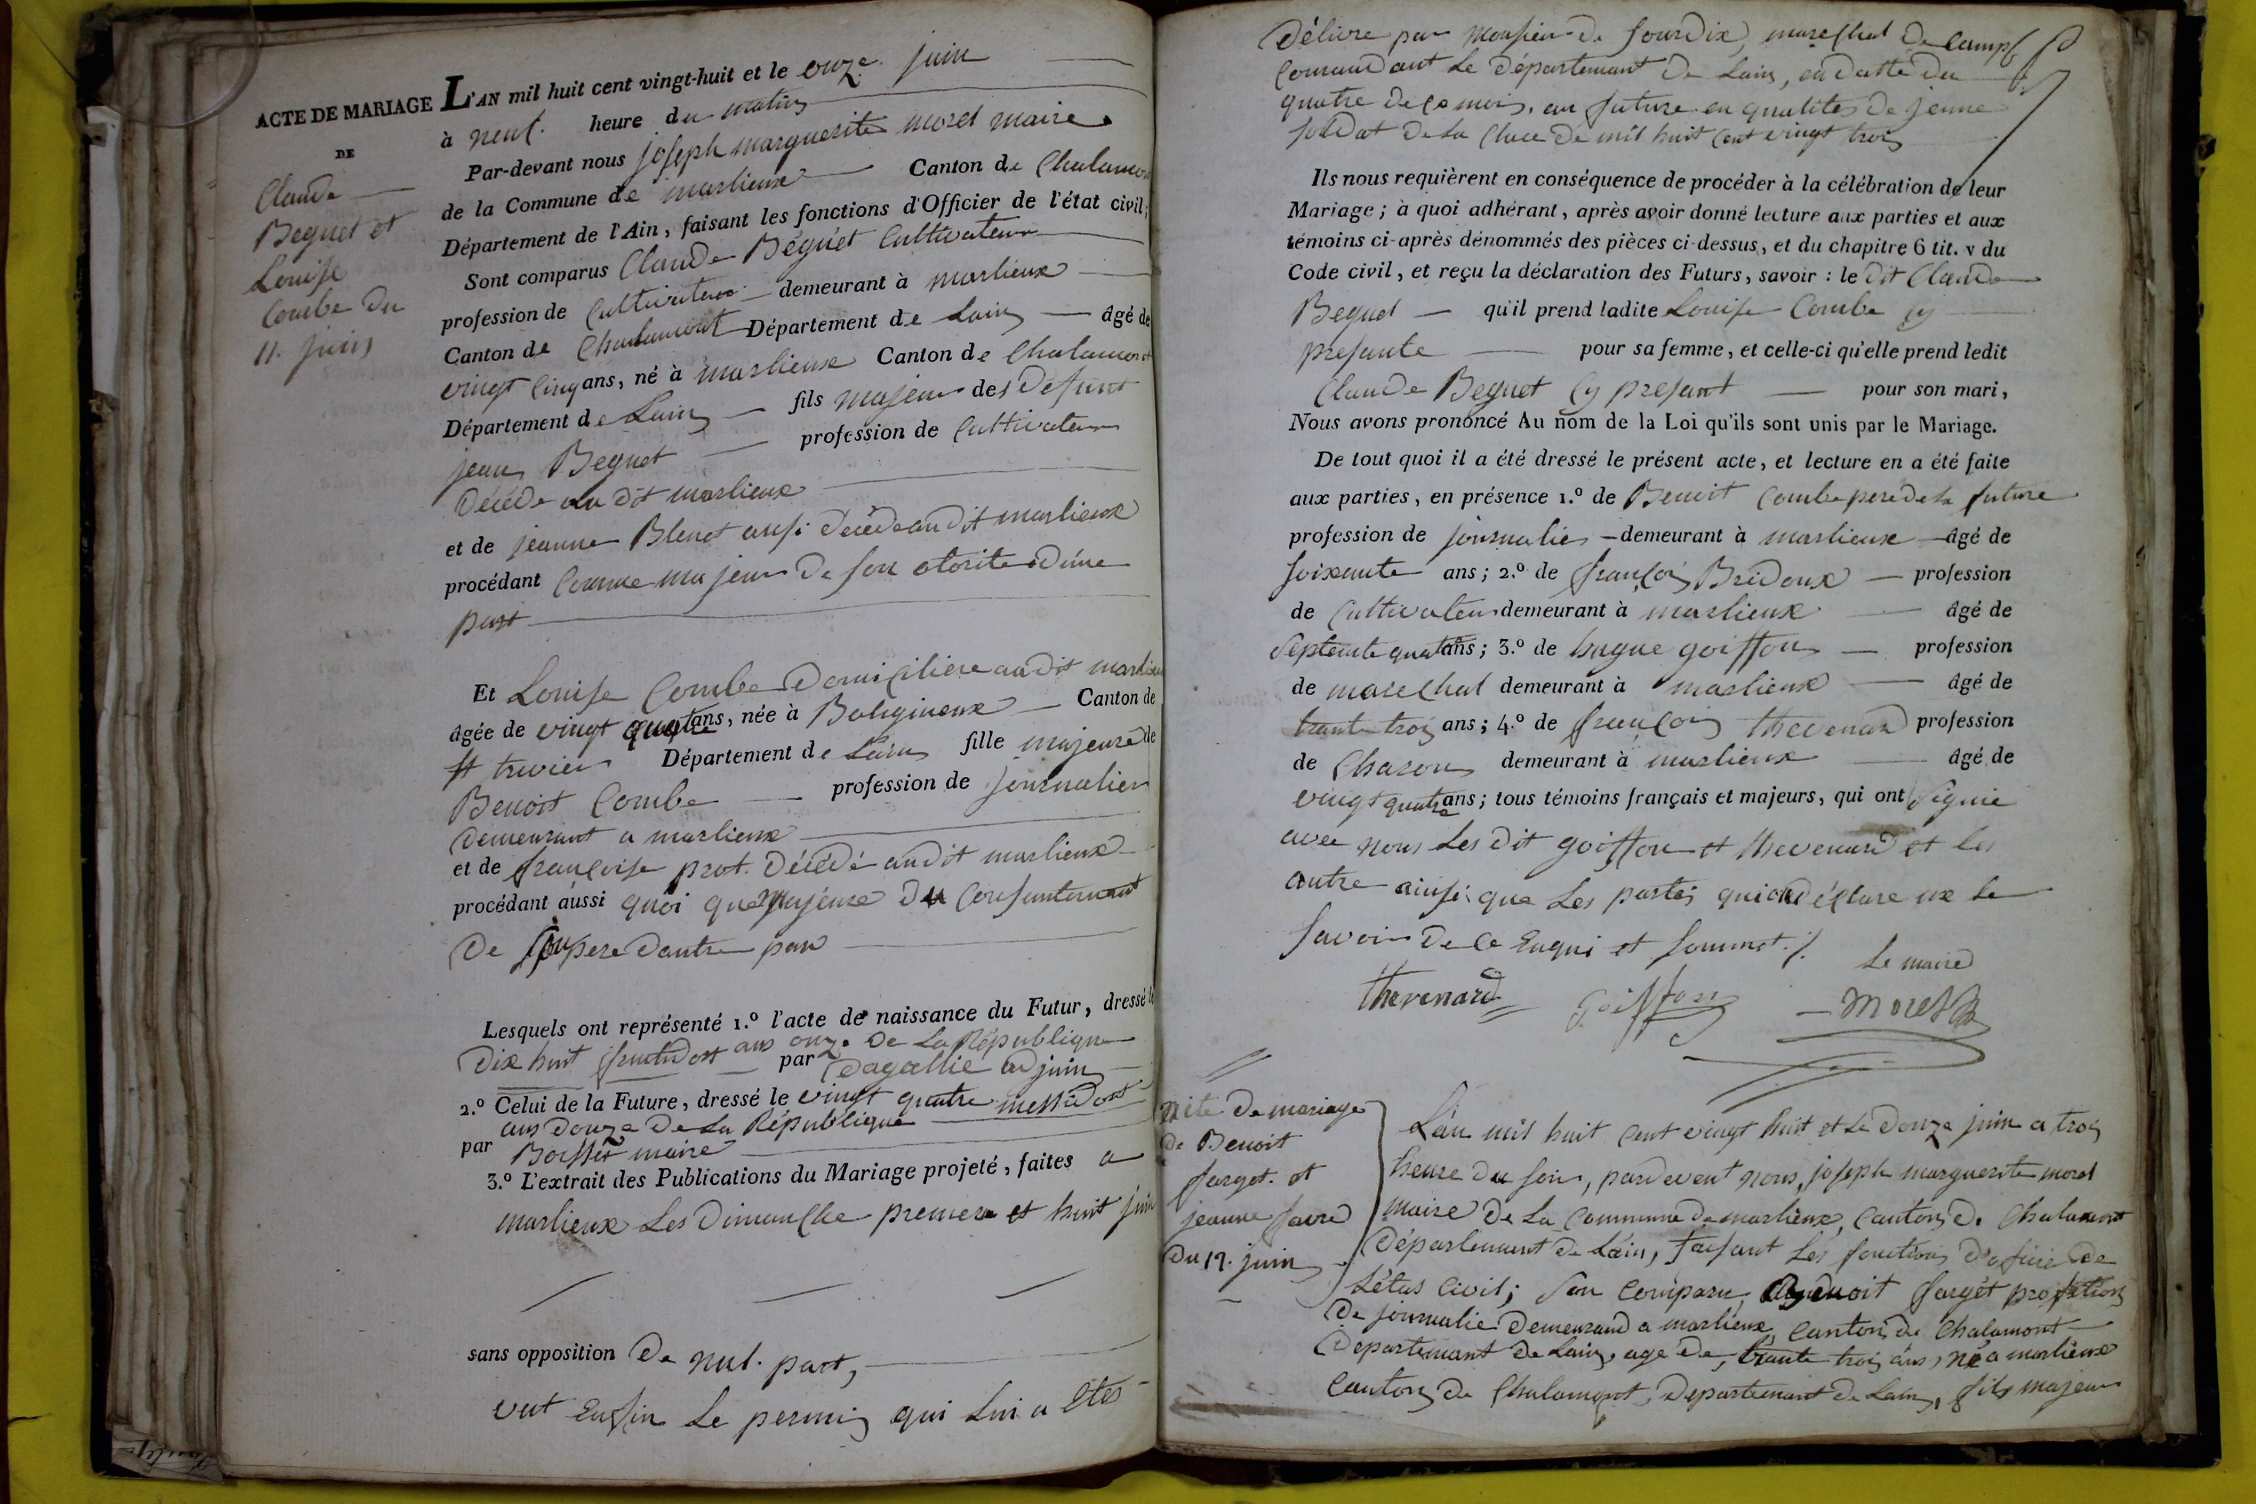 ACTE DE MARIAGE
DE
Claude
Beguet et
Louise
Combe du
11. juin
L'AN mil huit cent vingt-huit et le onze juin
à neuf. heure du matin
Par-devant nous joseph marguerite morel maire
de la Commune de marlieux Canton de Chalamont
Département de l'Ain, faisant les fonctions d'Officier de l'état civil;
Sont comparus Claude Béguet Cultivateur
profession de Cultivateur demeurant à marlieux
Canton de Chalamont Département de Lain âgé de
vingt cinq ans, né à marlieux Canton de Chalamont
Département de Lain fils majeur des defunt
jean Beguet profession de Cultivateur
décédé au dit marlieux
et de jeanne Blenet ausi décédé au dit marlieux
procédant comme majeur de son otorite d'une
part
Et Louise Combe domiciliere au dit marlieux
âgée de vingt quatre ans, née à Baligineux Canton de
st trivier Département de Lain fille majeure de
Benoit Combe profession de journalier
demeurant a marlieux
et de françoise prot. décédé au dit marlieux
procédant aussi quoi que majeure du Consantement
de son pere dautre part
Lesquels ont représenté 1.º l'acte de naissance du Futur, dressé le
dix huit fructidort ans onze de La République
par dagallie adjoin
2.º Celui de la Future, dressé le vingt quatre messidort
ans douze de La République
par Boisset maire
3.º L'extrait des Publications du Mariage projeté, faites a
marlieux Les dimanche premiere et huit juin
sans opposition de nul. part,
vut Enfin Le permis qui Lui a Etés
délivre par Monsieur de Sourdix, marechal de camp
Comandant Le département de Lain, en datte du
quatre de ce mois. au future en qualites de jeune
soldat de La Clace de mil huit cent vingt trois
Ils nous requièrent en conséquence de procéder à la célébration de leur
Mariage; à quoi adhérant, après avoir donné lecture aux parties et aux
témoins ci-après dénommés des pièces ci-dessus, et du chapitre 6 tit. v du
Code civil, et reçu la déclaration des Futurs, savoir: le dit Claude
Beguet qu'il prend ladite Louise Combe cy
presante pour sa femme, et celle-ci qu'elle prend ledit
Claude Beguet Cy presant pour son mari,
Nous avons prononcé Au nom de la Loi qu'ils sont unis par le Mariage.
De tout quoi il a été dressé le présent acte, et lecture en a été faite
aux parties, en présence 1.º de Benoit Combe pere de la future
profession de journalies demeurant à marlieux âgé de
soixante ans; 2.º de françois Bridoux profession
de Cultivateur demeurant à marlieux âgé de
Septente quatre ans; 3.º de hugue goiffon profession
de marechal demeurant à marlieux âgé de
trante trois ans; 4.º de françois thevenard profession
de Charon demeurant à marlieux âgé de
vingt quatre ans; tous témoins français et majeurs, qui ont signié
avec nous Les dit goiffon et thevenard et les
autre ainsi que Les partis qui ont déclare ne le
savoir de ce Enqui et sommet ./.
Le maire
thevenard goiffon morel
acte de mariage
de Benoit
farget. et
jeanne favre
du 12. juin
L'an mil huit cent vingt huit et Le douze juin a trois
heure du soir, pardevent nous, joseph marguerite morel
maire de La Commune de marlieux, canton de Chalamont
département de Lain, faisant Les fonctions d'oficie de
L'étas Civil; Son Comparu, Benoit farget profetion
de journalie demeurand a marlieux, canton de Chalamont
département de Lain, age de, trante trois ans, né a marlieux
Canton de Chalamont, département de Lain, fils majeur